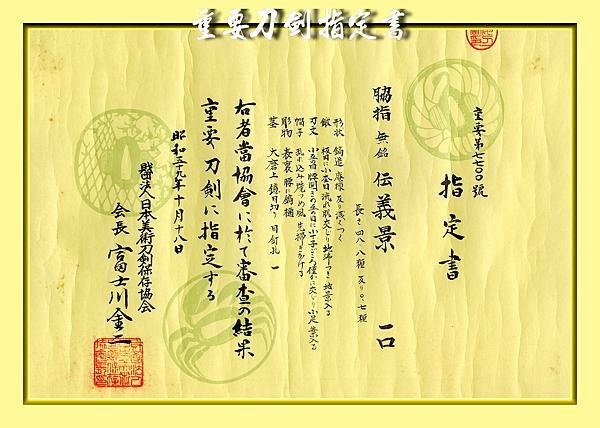 重要刀剣指定書
重要第七七〇〇號
指定書
脇指 無銘 伝義景 一口
長さ四八・八糎 反り〇・七糎
形状 鎬造 庵棟 反り浅くつく
鍛 板目に小杢目 流れ肌交じり 地沸つき 地景入る
刃文
帽子 乱れ込み 焼つめ風 先掃きかける
彫物 表裏 腰に鎬樋
茎 大磨上 鑢目切り 目釘孔一
右者當協會に於て審査の結果
重要刀剣に指定する
昭和五十九年十月十八日
財団法人日本美術刀剣保存協会
会長